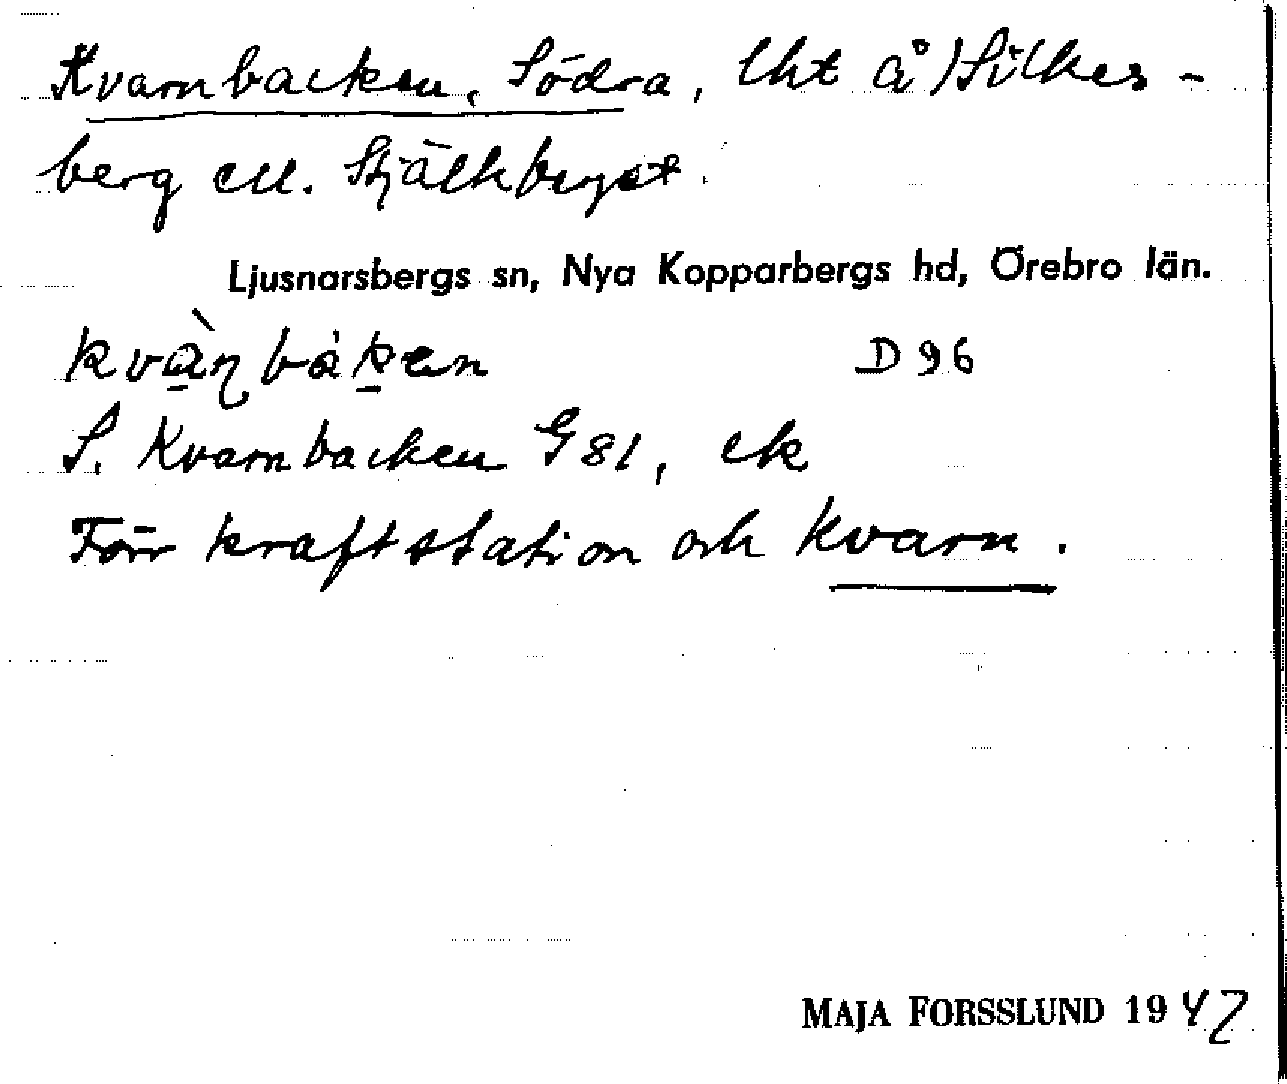 Kvarnbacken, Södra, lht å) Silkes-
berg ell. Stjälkberget.
Ljusnarsbergs sn, Nya Kopparbergs hd, Örebro län.
D 96
S. Kvarnbacken G 81, ek
Förr kraftstation och kvarn.
MAJA FORSSLUND 1947